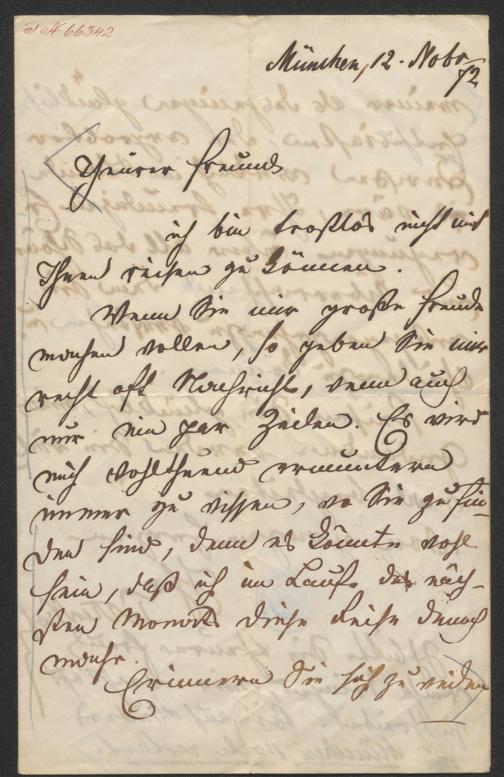 I.N. 66342
München, 12. Nobr
/72
Theurer Freund
ich bin trostlos nicht mit
Ihnen reisen zu können.
Wenn Sie mir große Freude
machen wollen, so geben Sie mir
recht oft Nachricht, wenn auch
nur ein par Zeilen. Es wird
mich wohlthuend ermuntern
immer zu wissen, wo Sie zu fin-
den sind, denn es könnte wohl
sein, daß ich im Laufe des näch-
sten Monats diese Reise danach
mache.
Erinnern Sie sich zu